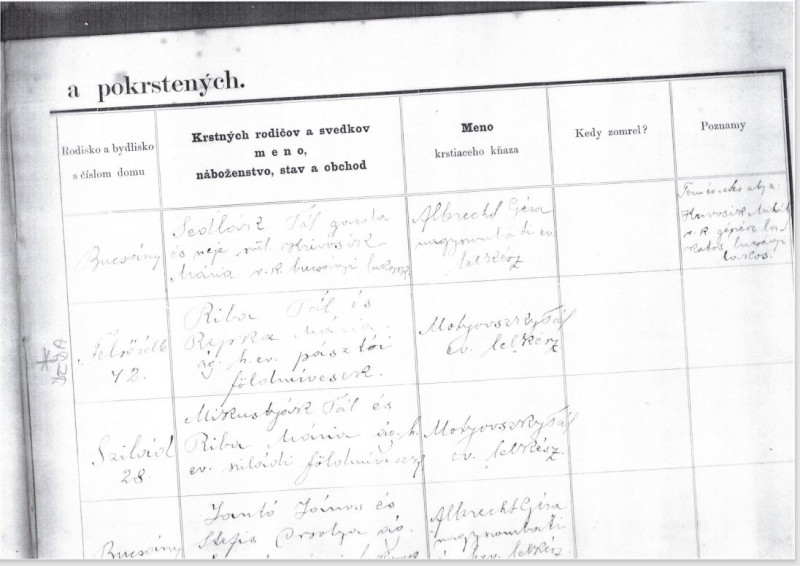 a pokrstených.
Rodisko a bydlisko
s číslom domu
Krstných rodičov a svedkov
meno,
náboženstvo, stav a obchod
Meno
krstiaceho kňaza
Kedy zomrel?
Poznamy
Bucsány
Sedlász Pál gazda
és neje szül.
Mária r. k. bucsányi
Albrecht Géza
nagyszombati ev.
lelkész
r. k. gépész la-
katos bucsányi
lakos.
42.
Riba Pál és
Repka Mária
ág. h. ev. pásztói
földmívesek.
Motyovszky Pál
ev. lelkész
Szilád
28.
Pál és
Riba Mária ág. h.
ev. sziládi földmívesek
Motyovszky Pál
ev. lelkész.
Bucsány
János és
Orsolya ág.
Albrecht Géza
nagyszombati
h. ev. lelkész